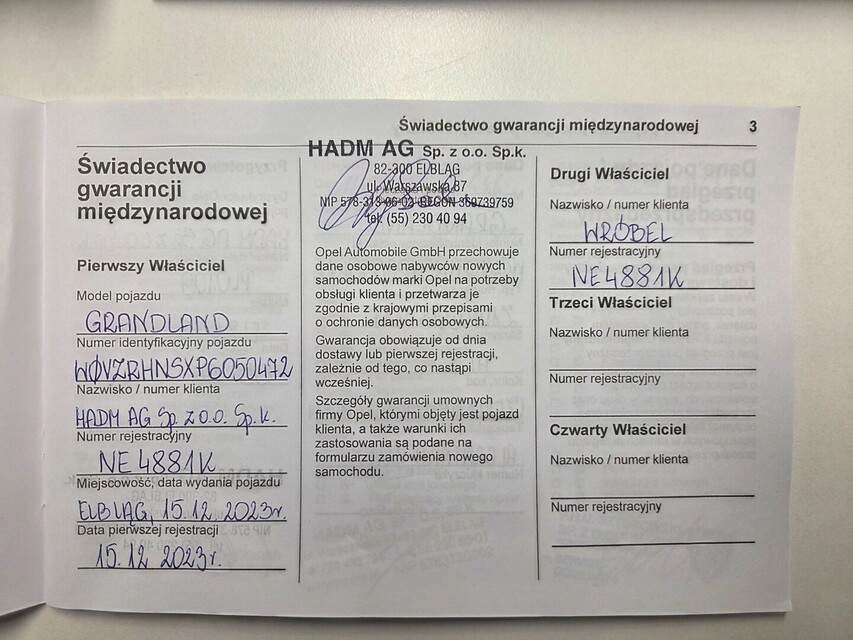 Świadectwo gwarancji międzynarodowej 3
Świadectwo
gwarancji
międzynarodowej
Pierwszy Właściciel
Model pojazdu
GRANDLAND
Numer identyfikacyjny pojazdu
WØVZRHNSXP6050472
Nazwisko / numer klienta
HADM AG Sp. z o.o. Sp.k.
Numer rejestracyjny
NE4881K
Miejscowość, data wydania pojazdu
ELBLĄG, 15.12.2023r.
Data pierwszej rejestracji
15.12 2023r.
HADM AG Sp. z o.o. Sp.k.
82-300 ELBLĄG
ul. Warszawska 87
tel. (55) 230 40 94
Opel Automobile GmbH przechowuje
dane osobowe nabywców nowych
samochodów marki Opel na potrzeby
obsługi klienta i przetwarza je
zgodnie z krajowymi przepisami
o ochronie danych osobowych.
Gwarancja obowiązuje od dnia
dostawy lub pierwszej rejestracji,
zależnie od tego, co nastąpi
wcześniej.
Szczegóły gwarancji umownych
firmy Opel, którymi objęty jest pojazd
klienta, a także warunki ich
zastosowania są podane na
formularzu zamówienia nowego
samochodu.
Drugi Właściciel
Nazwisko / numer klienta
WRÓBEL
Numer rejestracyjny
NE4881K
Trzeci Właściciel
Nazwisko / numer klienta
Numer rejestracyjny
Czwarty Właściciel
Nazwisko / numer klienta
Numer rejestracyjny